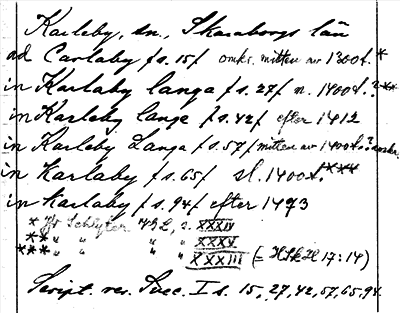 Karleby, sn., Skaraborgs län
ad Carlaby fs. 15f omkr. mitten av 1300t.*
in Karlaby langa fs. 27f n. 1400t.?**
in Karleby lange fs. 42f efter 1412
in Karleby Langa fs. 57f mitten av 1400t.?
in Karlaby fs. 65f sl. 1400t.***
in Karlaby fs. 94f efter 1493
* Jfr Schlyter VGL, s. XXXIV
** " " " " XXXV
*** " " " " XXXIII (= HSkH 17:14)
Script. rer. Svec. I s. 15, 27, 42, 57, 65, 94.